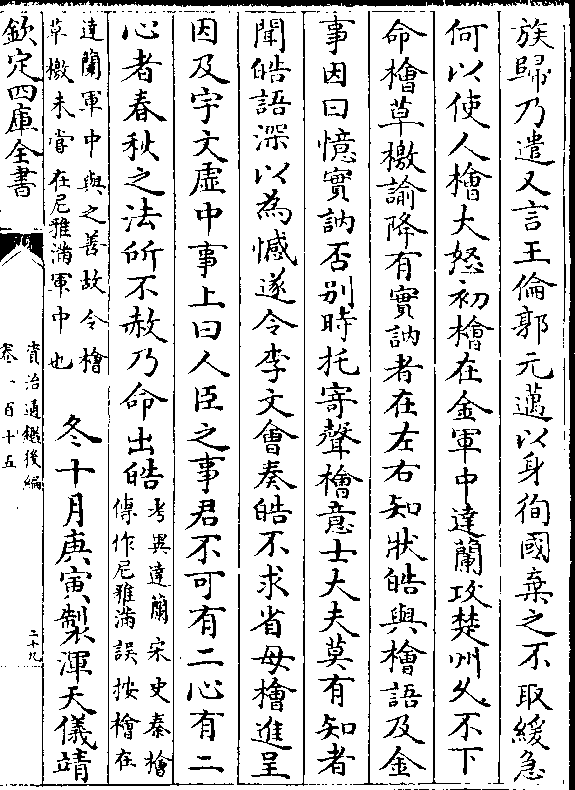 族歸乃遣又言王倫郭元邁以身徇國棄之不取緩急
何以使人檜大怒初檜在金軍中達蘭攻楚州久不下
命檜草檄諭降有實訥者在左右知狀皓與檜語及金
事因曰憶實訥否别時托寄聲檜意士大夫莫有知者
聞皓語深以為憾遂令李文會奏皓不求省母檜進呈
因及宇文虚中事上曰人臣之事君不可有二心有二
心者春秋之法所不赦乃命出皓
考異達蘭宋史秦檜
傳作尼雅滿誤按檜在
達蘭軍中與之善故令檜
草檄未嘗在尼雅滿軍中也
冬十月庚寅製渾天儀靖
欽定四庫全書
資治通鑑後編
卷一百十五
二十九